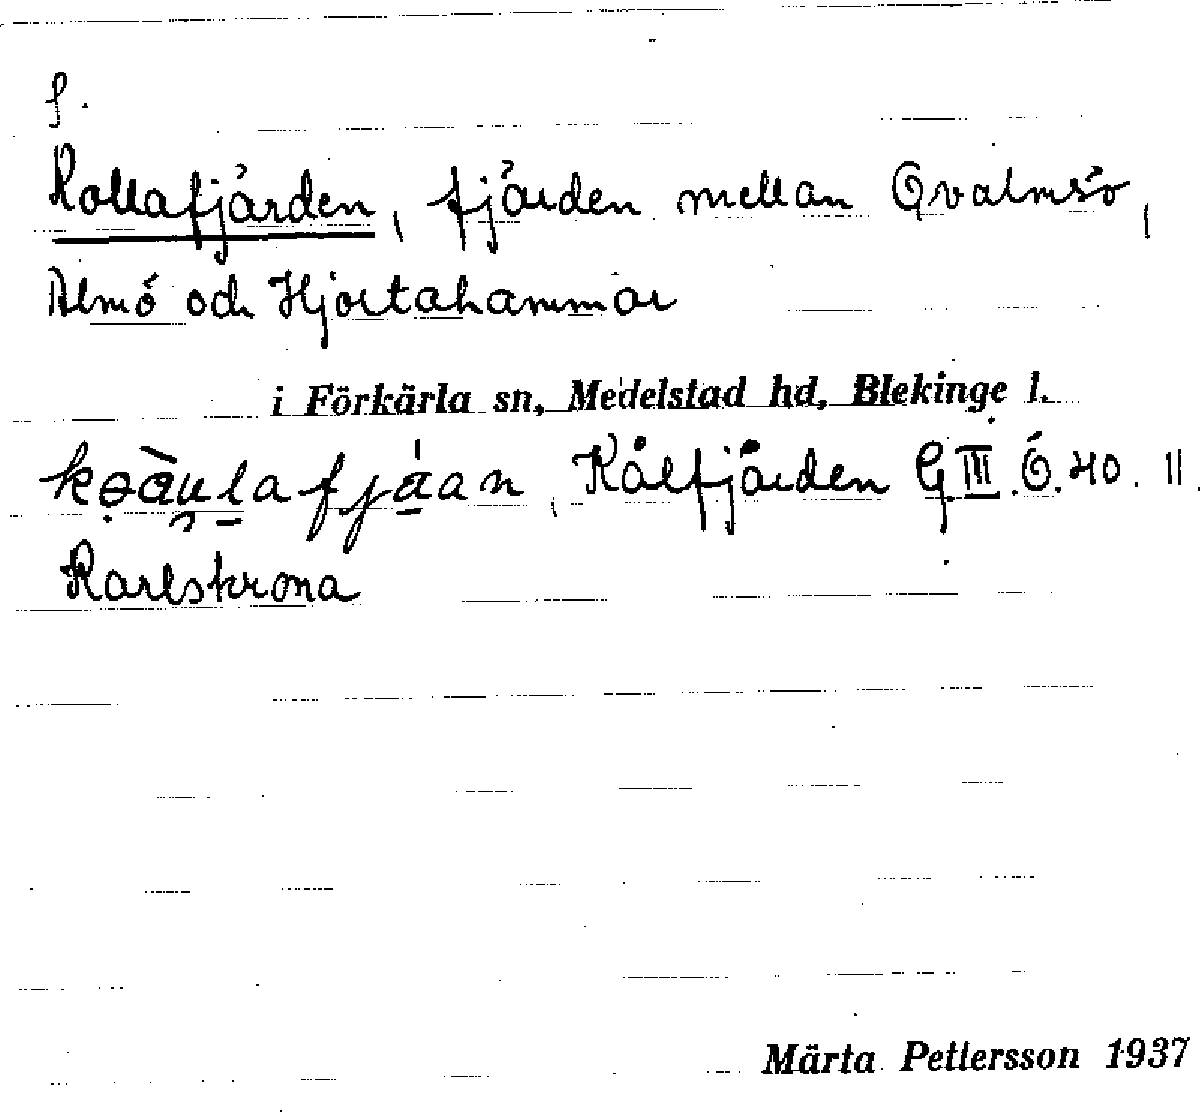 S.
Kollafjärden, fjärden mellan Qvalmsö,
Almö och Hjortahammar
i Förkärla sn, Medelstad hd, Blekinge l.
Kålfjärden G III Ö. 40. 11.
Karlskrona
Märta Pettersson 1937